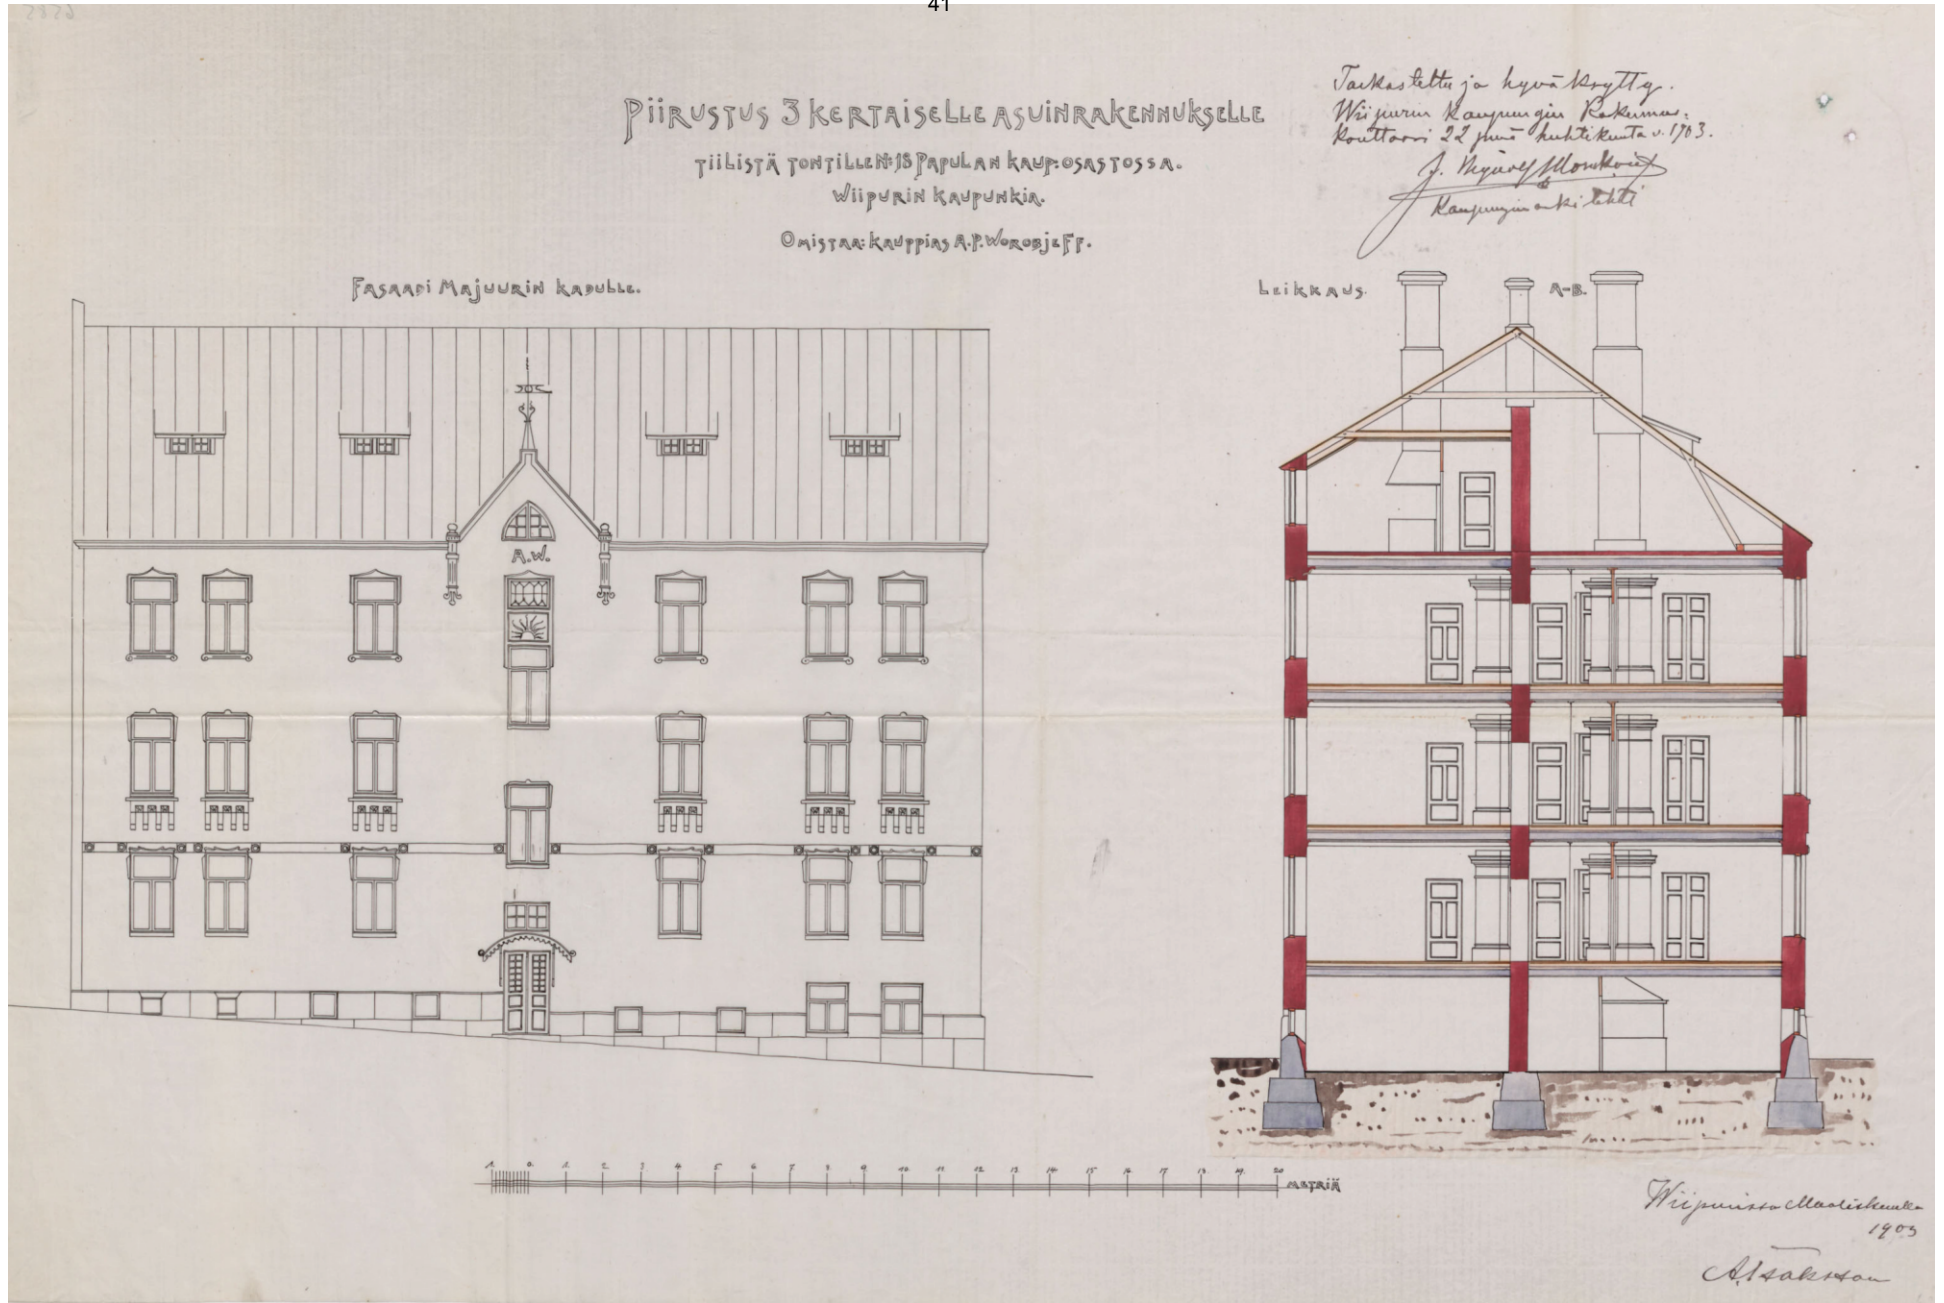 41
Piirustus 3 kertaiselle asuinrakennukselle
tiilistä tontille No: 18 Papulan kaup: osastossa.
Wiipurin kaupunkia.
Omistaa: kauppias A.P. Worobjeff.
Tarkastettu ja hyväksytty.
Wiipurin Kaupungin Rakennus-
konttorri 22 p:nä huhtikuuta v. 1903.
Kaupunginarkitehti
Fasaadi Majuurin kadulle.
Leikkaus. A-B.
A.W.
1 0 1 2 3 4 5 6 7 8 9 10 11 12 13 14 15 16 17 18 19 20 metriä
Wiipurissa Maaliskuulla
1903
A. Isaksson